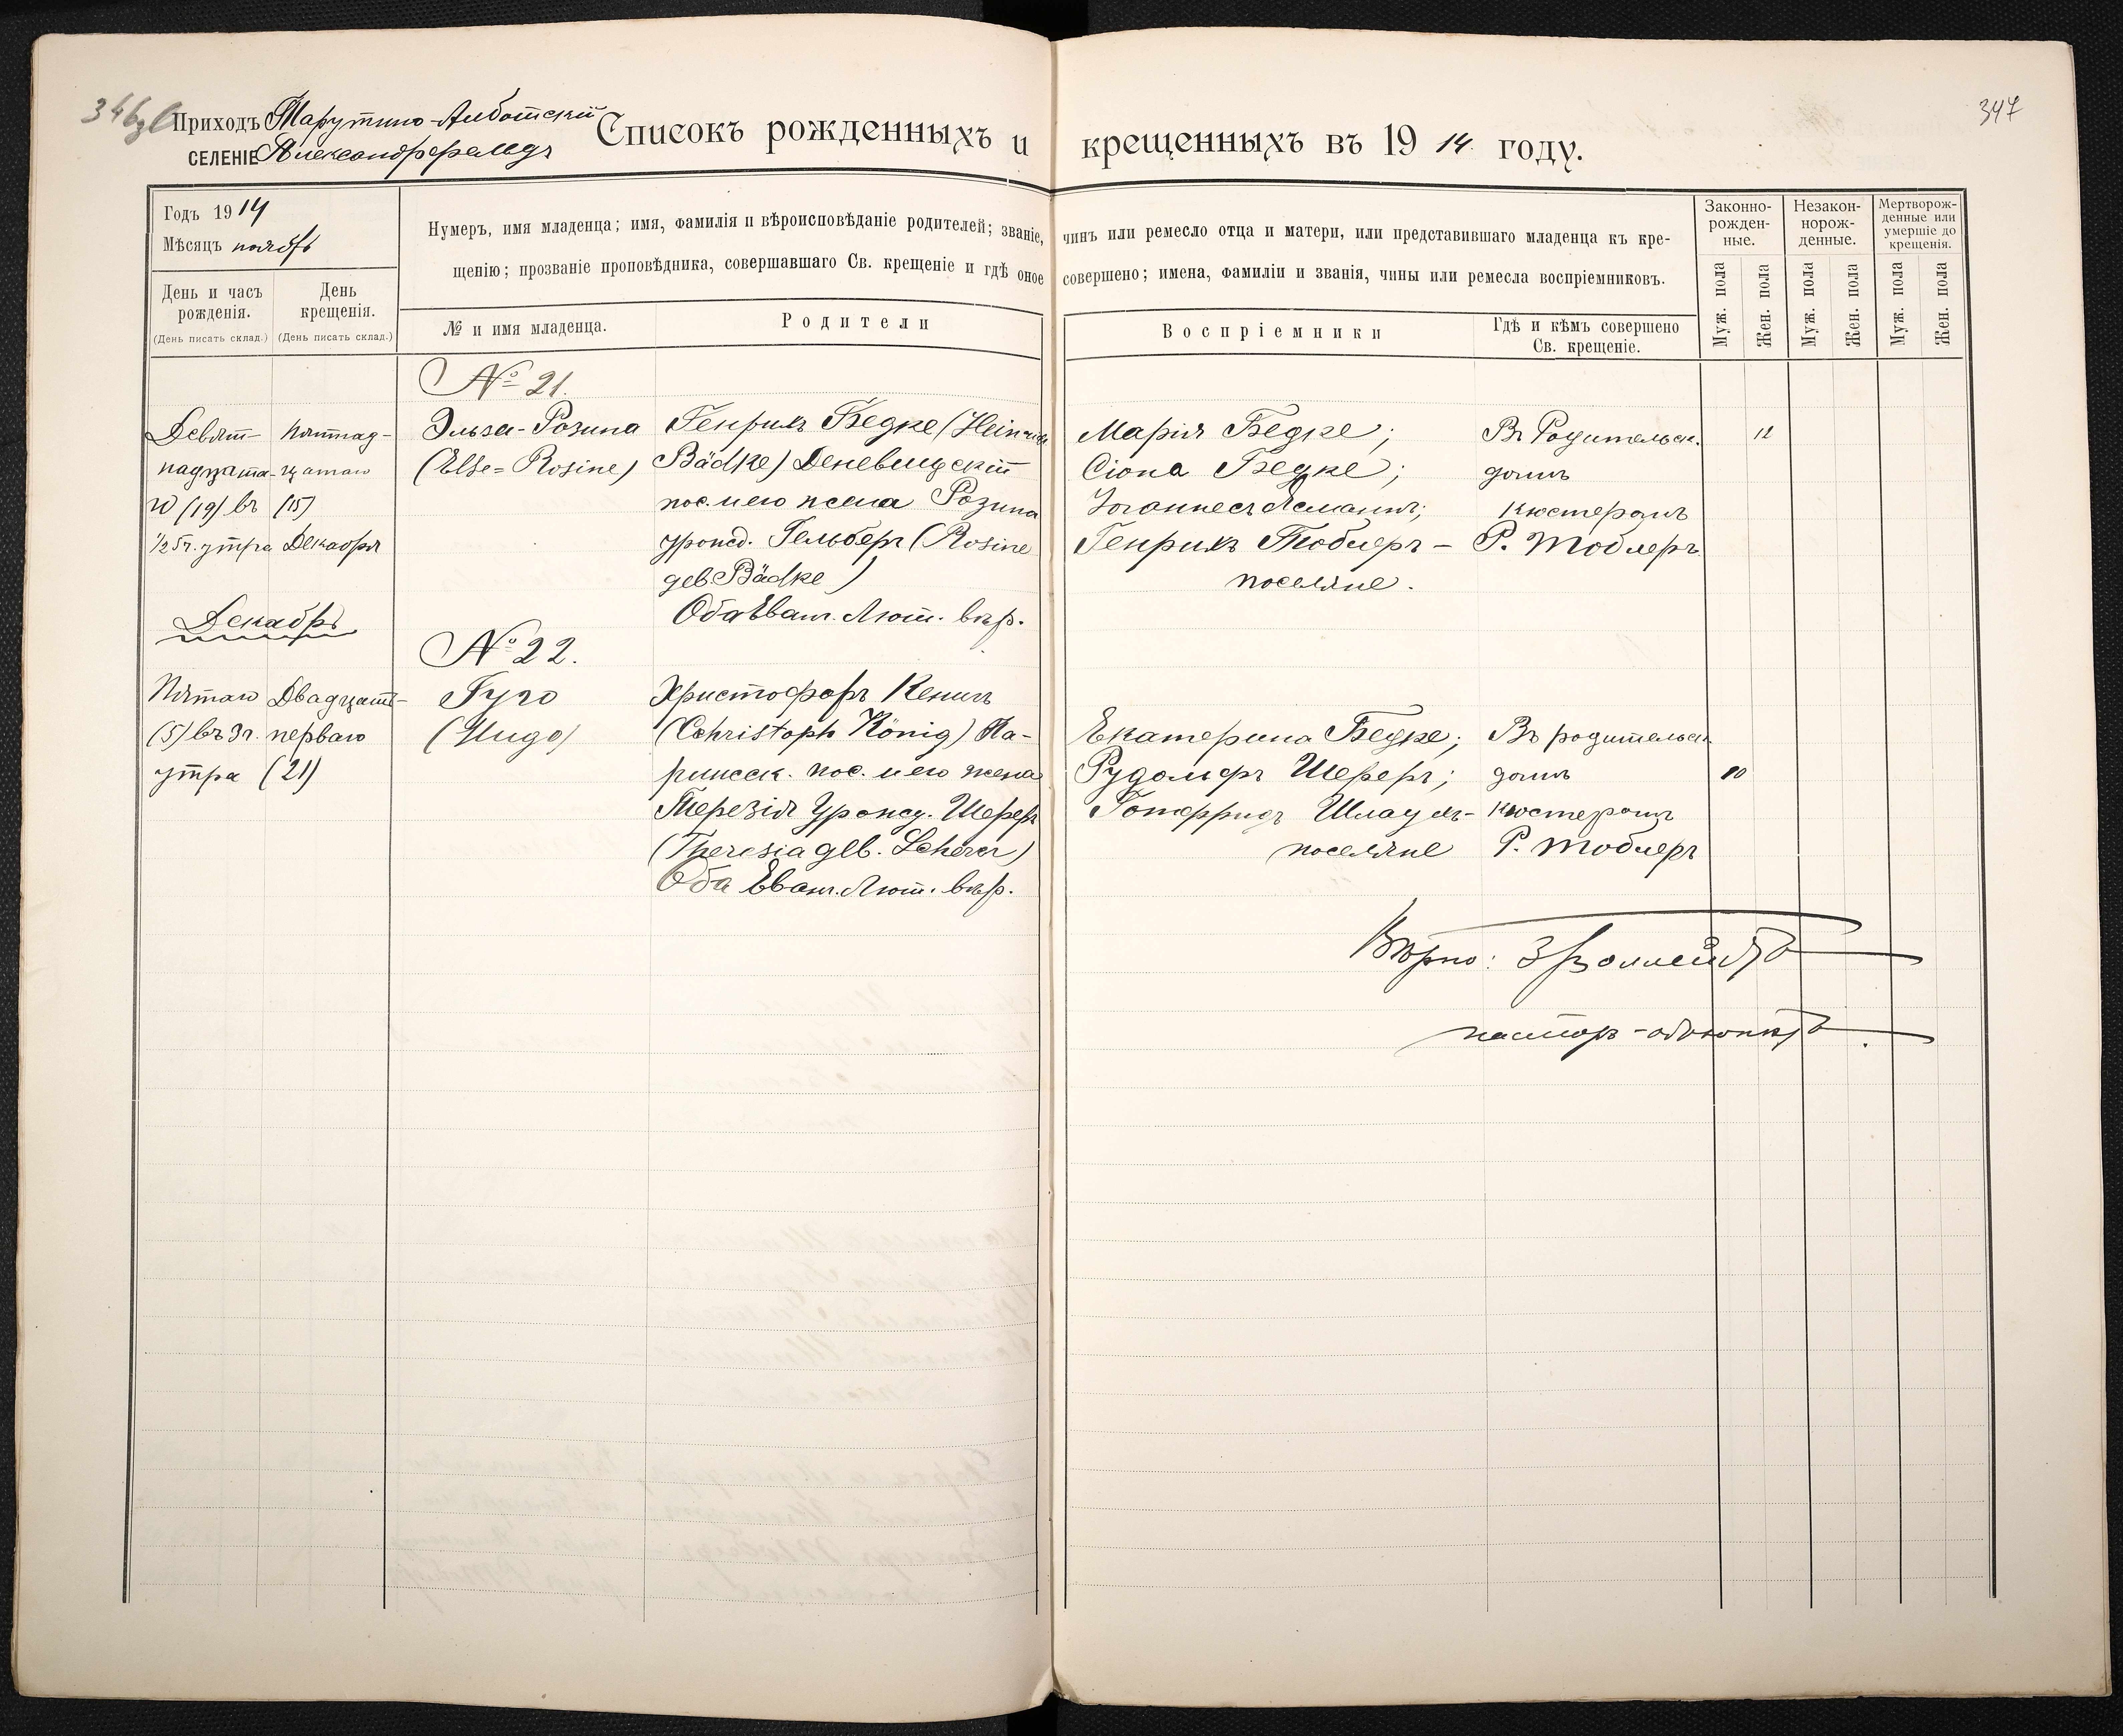 346
347
Приходъ Тарутино-Альботскій
СЕЛЕНІЕ Александрфельдъ
Списокъ рожденныхъ и крещенныхъ въ 1914 году.
Годъ 1914
Мѣсяцъ ноябрь
День и часъ рожденія.
(День писать склад.)
День крещенія.
(День писать склад.)
Нумеръ, имя младенца; имя, фамилія и вѣроисповѣданіе родителей; званіе, чинъ или ремесло отца и матери, или представившаго младенца къ кре-
щенію; прозваніе проповѣдника, совершавшаго Св. крещеніе и гдѣ оное совершено; имена, фамиліи и званія, чины или ремесла воспріемниковъ.
№ и имя младенца.
Родители
Воспріемники
Гдѣ и кѣмъ совершено
Св. крещеніе.
Законно-
рожден-
ные.
Незакон-
норож-
денные.
Мертворож-
денные или
умершіе до
крещенія.
Муж. пола
Жен. пола
Муж. пола
Жен. пола
Муж. пола
Жен. пола
№ 21.
Девят-
надцата-
го (19) въ
1/2 5 ч. утра
Пятнад-
цатаго
(15)
Декабря
Эльза-Розина
(Else=Rosine)
Генрихъ Бедке (Heinrich
Bädke) Деневицскій
пос. и его жена Розина
урожд. Гельберг (Rosine
geb. Bädke)
Оба Еванг. Лют. вѣр.
Марія Бедке;
Сіона Бедке;
Іоаннесъ
Генрихъ Тоблеръ-
поселяне.
Въ Родительск.
домѣ
кюстеромъ
Р. Тоблеръ.
12
Декабрь
№ 22.
Пятаго
(5) въ 3 ч.
утра
Двадцать-
перваго
(21)
Гуго
(Hugo)
Христофоръ Кенигъ
(Christoph König) Па-
рижск. пос. и его жена
Терезія Урожд. Шереръ
(Theresia geb. Scherer)
Оба Еванг. Лют. вѣр.
Екатерина Бедке;
Рудольфъ Шереръ;
Готфридъ Шлаухъ-
поселяне
Въ родительск
домѣ
кюстеромъ
Р. Тоблеръ
10
Вѣрно:
пасторъ-адъюнктъ.